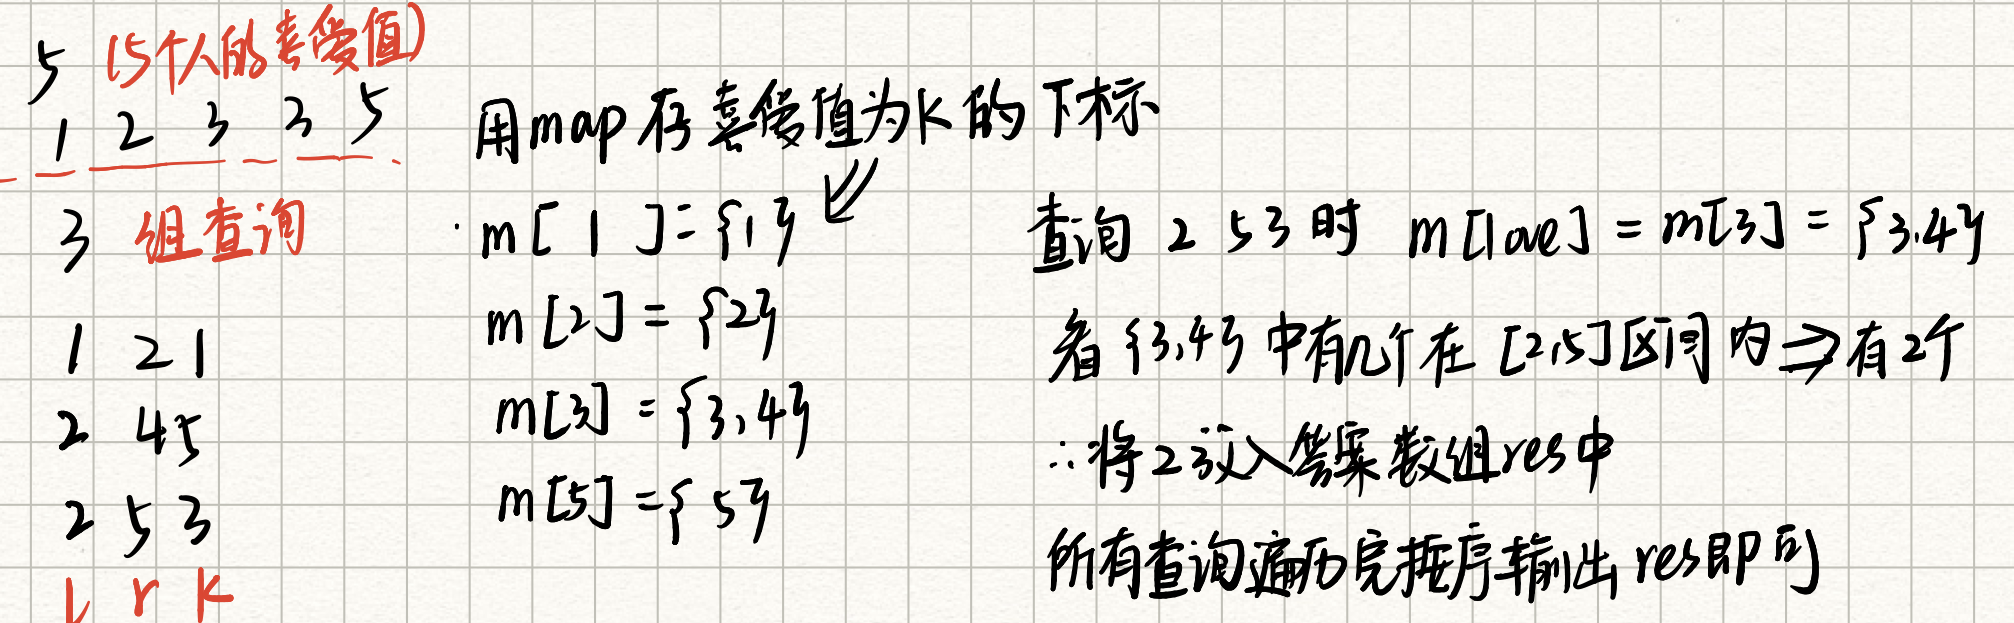 5 (5个人的喜爱值)
1 2 3 3 5
3 组查询
1 2 1
2 4 5
2 5 3
l r k
用map存喜爱值为k的下标
m[1]={1}
m[2]={2}
m[3]={3,4}
m[5]={5}
查询 2 5 3 时 m[love]=m[3]={3,4}
看{3,4}中有几个在[2,5]区间内⇒有2个
∴将2放入答案数组res中
所有查询遍历完按序输出res即可